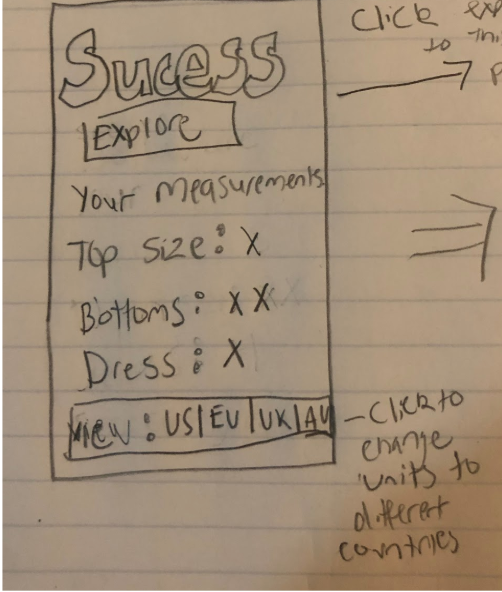 Sucess
Explore
Your measurements
Top size: X
Bottoms: XX
Dress: X
View: US|EU|UK|AU
Click exp
to thi
p
-Click to
change
units to
different
countries